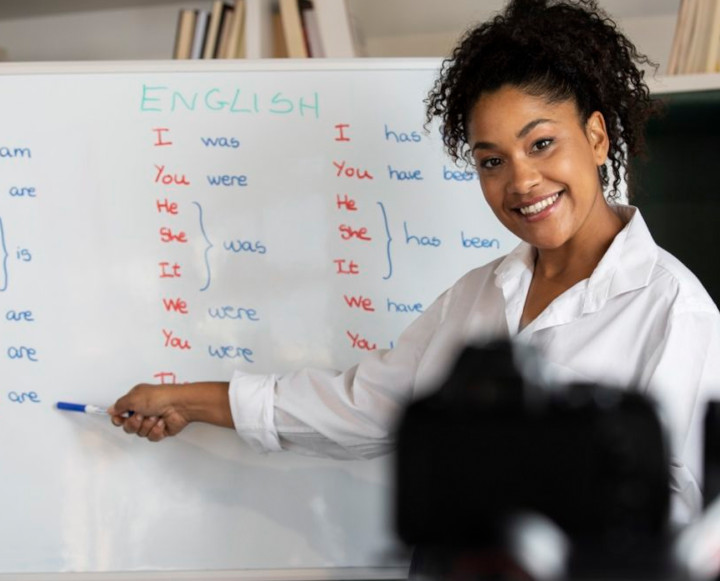 ENGLISH
am
are
is
are
are
are
I was
You were
He
She was
It
We were
You were
I has
You have been
He
She has been
It
We have
You